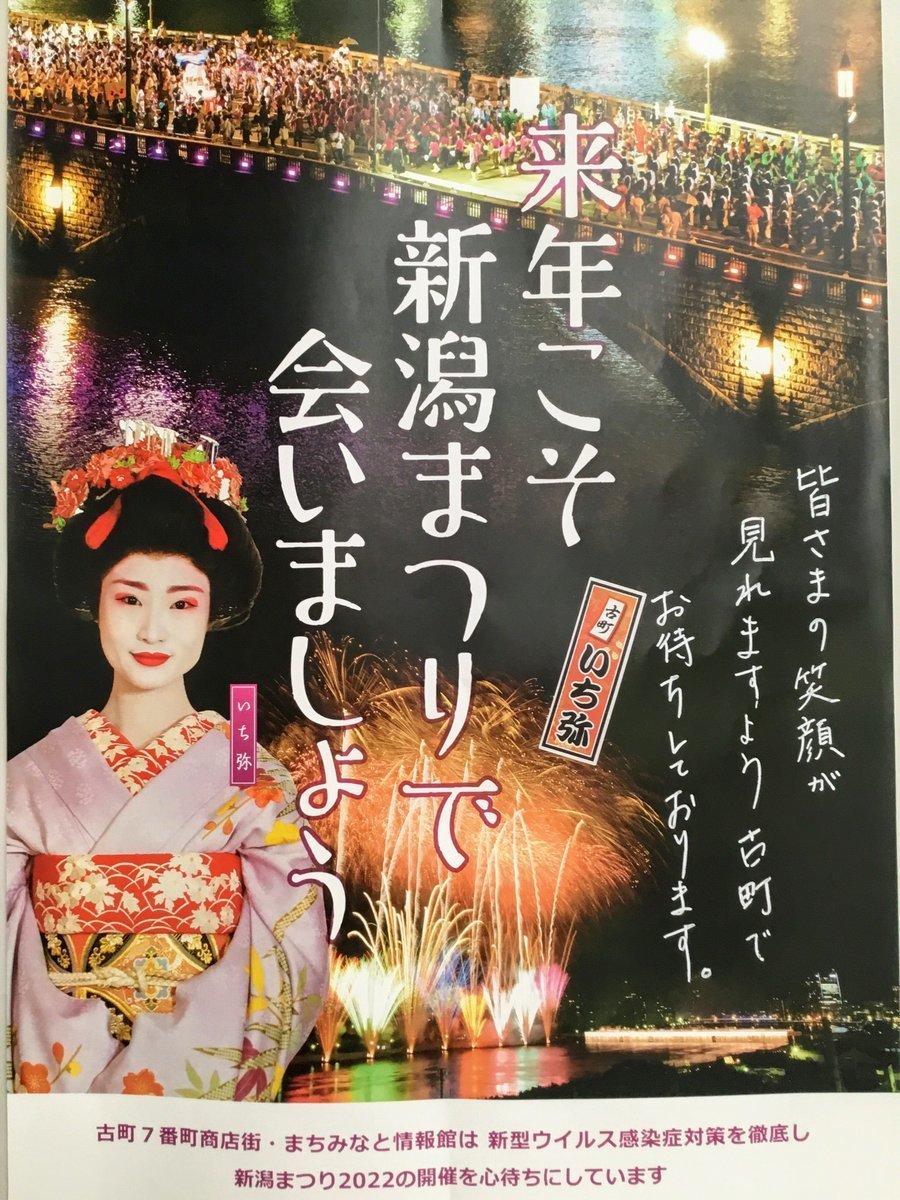 来年こそ
新潟まつりで
会いましょう
皆さまの笑顔が
見れますよう古町で
お待ちしております。
古町
いち弥
いち弥
古町7番町商店街・まちみなと情報館は 新型ウイルス感染症対策を徹底し
新潟まつり2022の開催を心待ちにしています